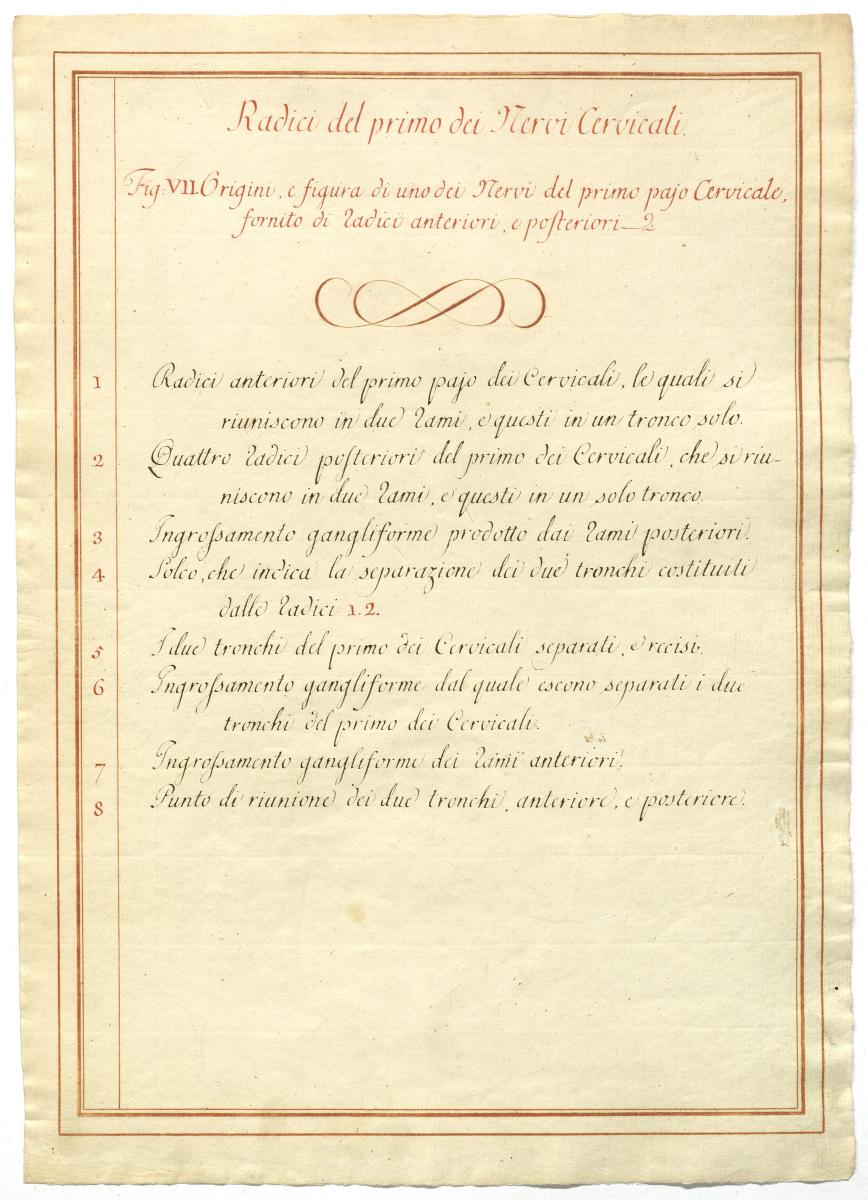 Radici del primo dei Nervi Cervicali.
Fig: VII. Origini, e figura di uno dei Nervi del primo pajo Cervicale,
fornito di radici anteriori, e posteriori—2
1 Radici anteriori del primo pajo dei Cervicali, le quali si
riuniscono in due rami, e questi in un tronco solo.
2 Quattro radici posteriori del primo dei Cervicali, che si riu-
niscono in due rami, e questi in un solo tronco.
3 Ingrossamento gangliforme prodotto dai rami posteriori.
4 Solco, che indica la separazione dei due tronchi costituiti
dalle radici 1. 2.
5 I due tronchi del primo dei Cervicali separati, e recisi.
6 Ingrossamento gangliforme dal quale escono separati i due
tronchi del primo dei Cervicali.
7 Ingrossamento gangliforme dei rami anteriori.
8 Punto di riunione dei due tronchi, anteriore, e posteriore.